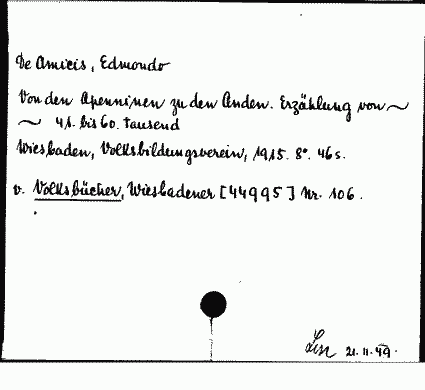 De Amicis, Edmondo
Von den Apenninen zu den Anden. Erzählung von ~
~ 41. bis 60. Tausend
Wiesbaden, Volksbildungsverein, 1915. 8°. 46 s.
v. Volksbücher, Wiesbadener [44995] Nr. 106.
21.11.49.